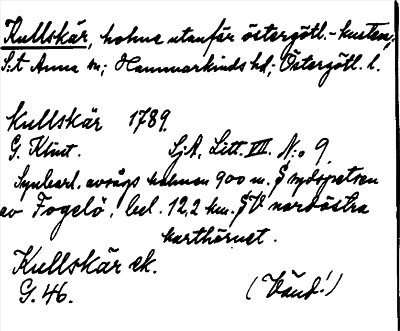 Kullskär, holme utanför östergötl.-kusten,
S:t Anna sn; Hammarkinds hd; Östergötl. l.
Kullskär 1789.
G. Klint. SjA. Litt. VII. N:o 9.
Synbarl. avsågs holmen 900 m. S sydspetsen
av Fogelö, bel. 12,2 km. SV nordöstra
karthörnet.
Kullskär ek.
G. 46. (Vänd!)